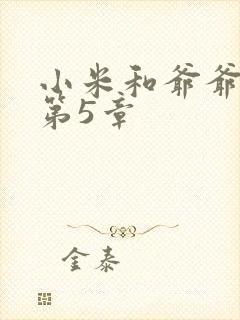 小米和爷爷
第5章
金泰